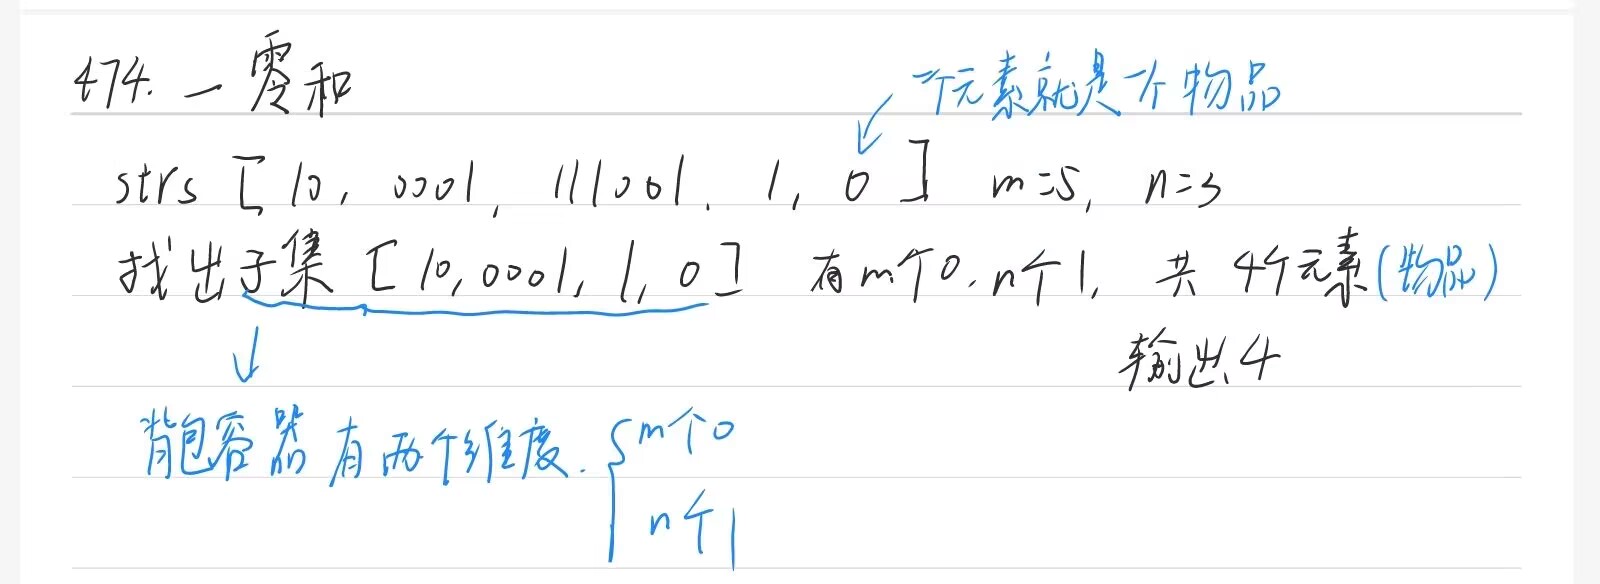 474. 一零和
一个元素就是一个物品
strs [10, 0001, 111001, 1, 0] m=5, n=3
找出子集 [10,0001,1,0] 有m个0, n个1, 共 4个元素(物品)
输出4
背包容器有两个维度. { m个0
n个1